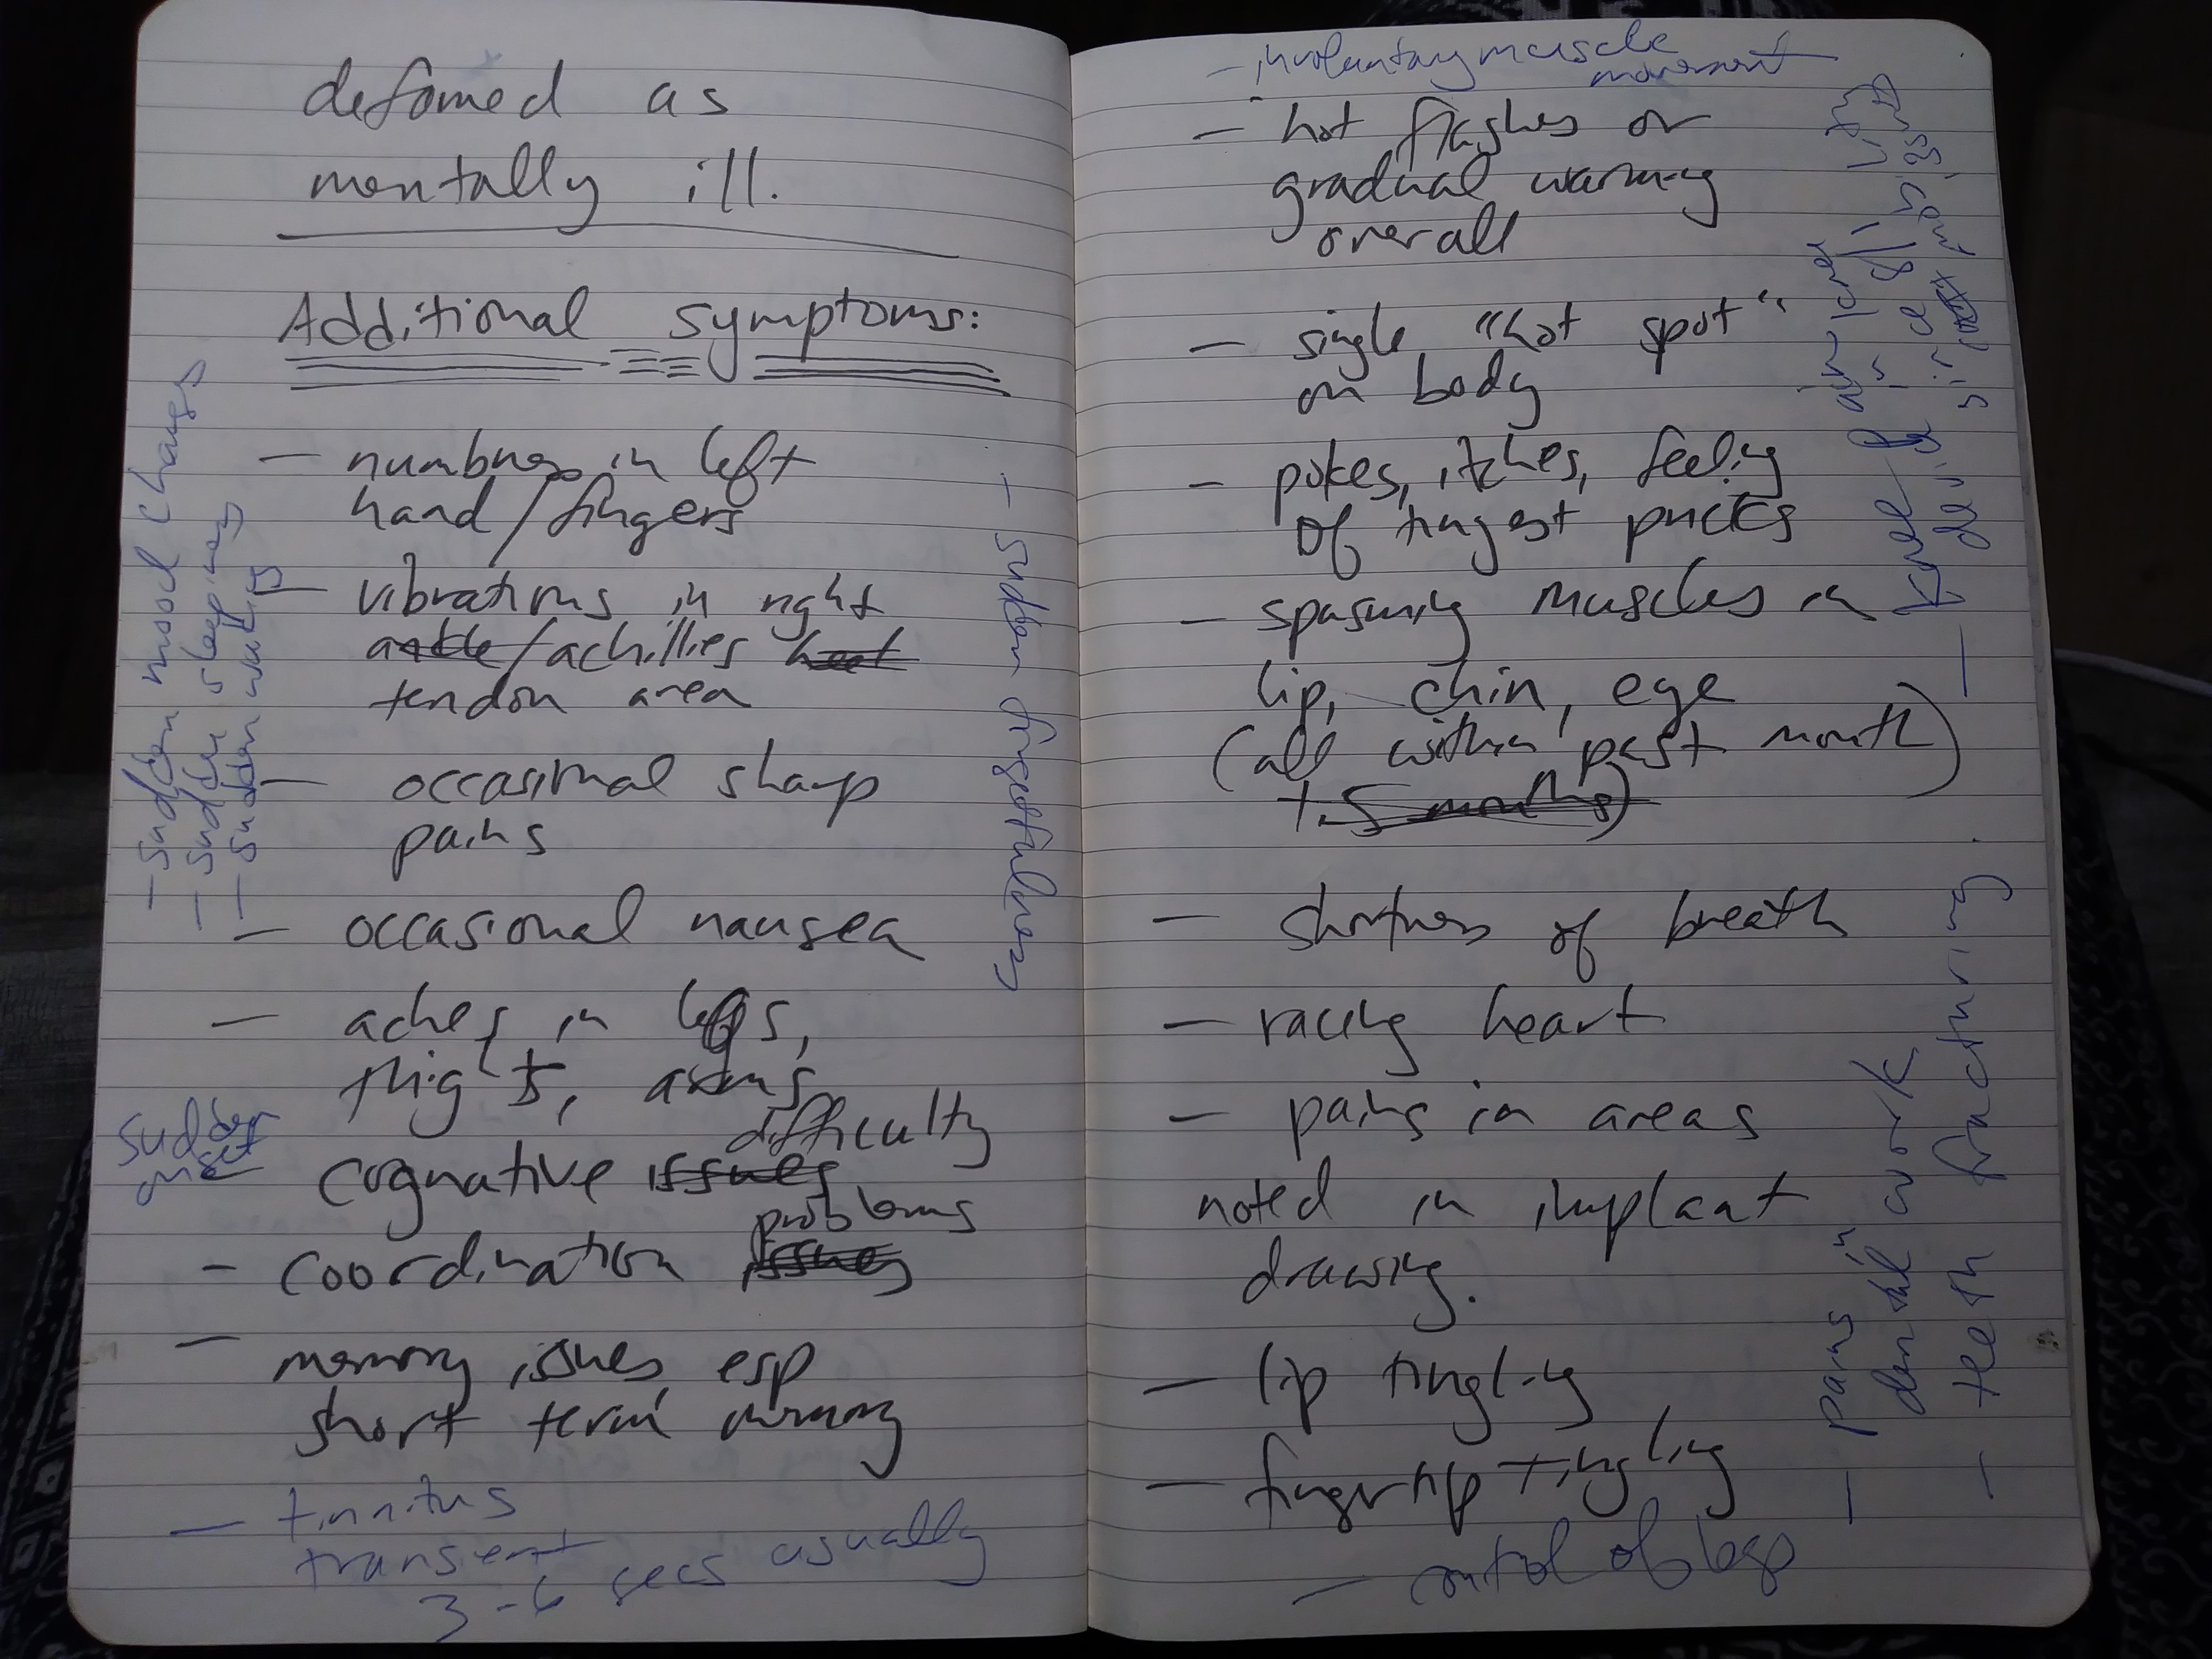 defamed as
mentally ill.
Additional symptoms:
- numbness in left
hand/fingers
- vibrations in right
ankle/achillies heel
tendon area
- occasional sharp
pains
- occasional nausea
- aches in legs,
thights, arms
sudden
onset
difficulty
cognative issues
problems
- coordination issues
- memory issues esp
short term memory
- tinnitus
transient
3-6 secs usually
- sudden mood changes
- sudden sleepiness
- sudden waking
- sudden forgetfulness
- involuntary muscle
movement
- hot flashes or
gradual warming
overall
- single "hot spot"
on body
- pokes, itches, feeling
of tingest pricks
- spasming muscles in
lip, chin, eye
(all within past month)
1.5 months)
- shortness of breath
- racing heart
- pains in areas
noted in implant
drawing.
- lip tingling
- fingertip tingling
- control of
- pains in
dental work
- teeth fracturing.
knee
since
- since